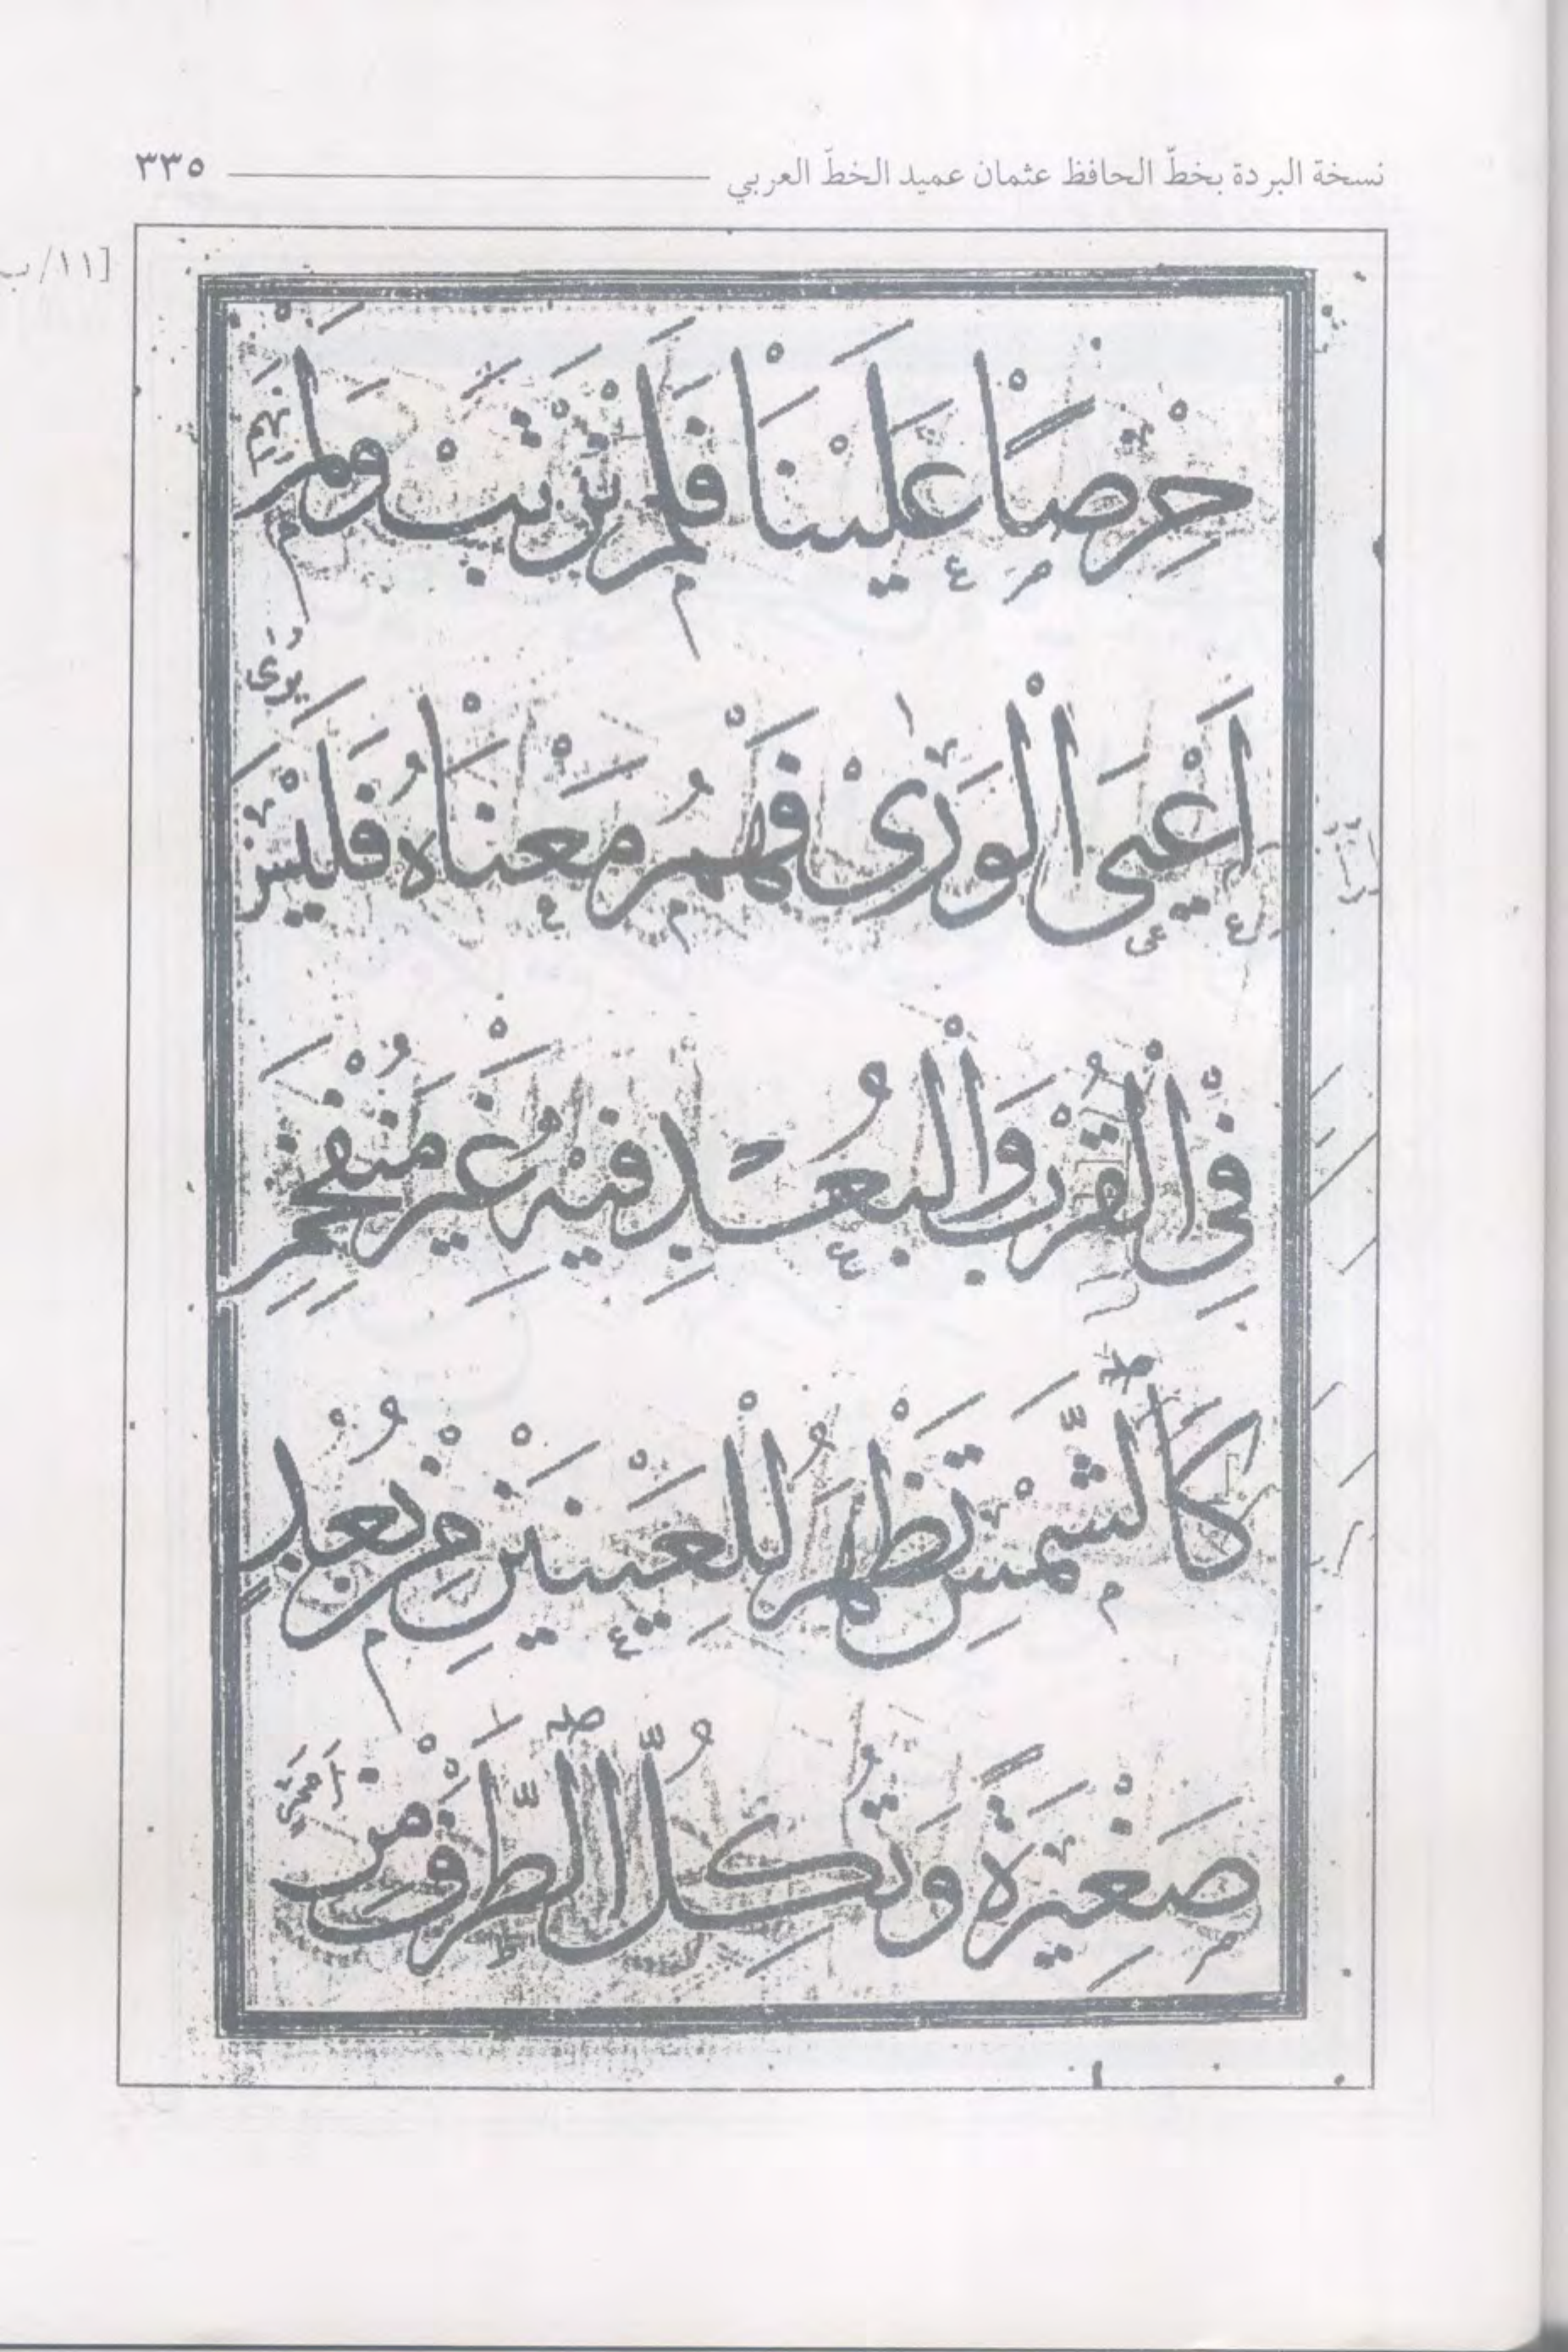 نسخة البردة بخطّ الحافظ عثمان عميد الخطّ العربي ٣٣٥
[١١/ب
حِرْصًا عَلَيْنَا فَلَمْ نَرْتَبْ وَلَمْ نَهِمِ
اَعْيَى الْوَرٰىْ فَهْمُ مَعْنَاهُ فَلَيْسَ يُرَى
فِى الْقُرْبِ وَالْبُعْدِ فِيْهِ غَيْرُ مُنْفَحِمِ
كَالشَّمْسِ تَظْهَرُ لِلْعَيْنَيْنِ مِنْ بُعُدٍ
صَغِيْرَةً وَتُكِلُّ الطَّرْفَ مِنْ اَمَمٍ